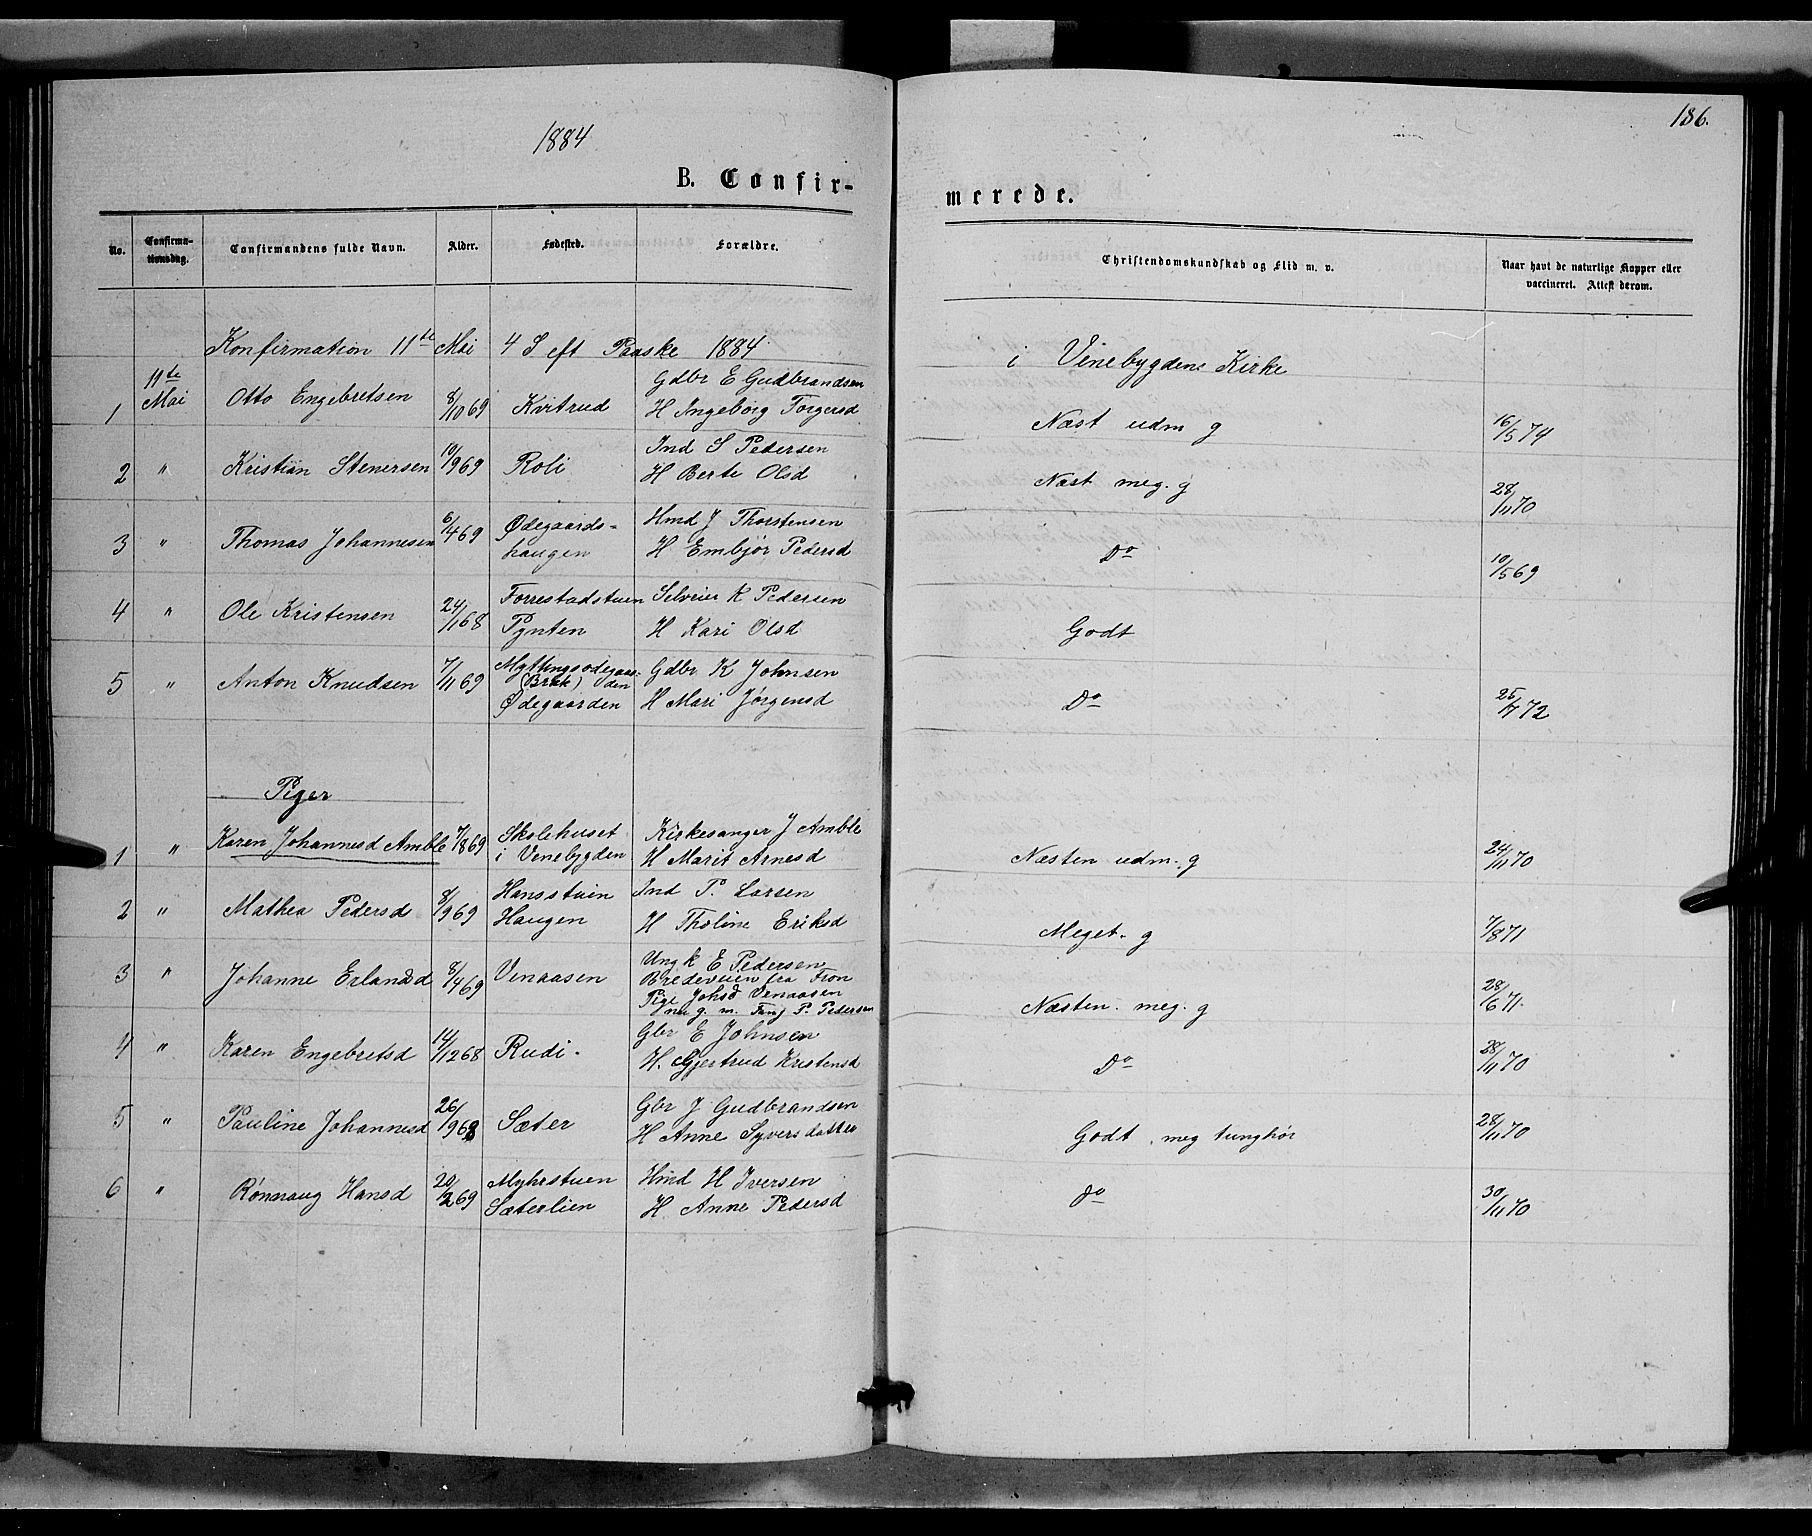 1884
186.
B. Confir-
merede.
No.
Confirma-
tionsdag.
Confirmandens fulde Navn.
Alder.
Fødested.
Forældre.
Christendomskundskab og Flid m. v.
Naar havt de naturlige Kopper eller
vaccineret. Attest derom.
Konfirmation 11te Mai 4 S eft Paaske 1884
i Venebygdens Kirke
1 11te Mai Otto Engebretsen 8/10 69 Kvitrud Gdbr E Gudbrandsen
H Ingeborg Torgersd Næst udm g 16/5 74
2 " Kristian Stenersen 10/9 69 Roli Ind S Pedersen
H Berte Olsd Næst meg. g 28/11 70
3 " Thomas Johannesen 6/4 69 Ødegaards- Hmd J Thorstensen
haugen H Embjør Pedersd Do 10/5 69
4 " Ole Kristensen 24/1 68 Forrestadstuen Selveier K Pedersen
Pynten H Kari Olsd Godt
5 " Anton Knudsen 7/11 69 Myttingsødegaar- Gdbr K Johnsen
(Bræk) den
Ødegaarden H Mari Jørgensd Do 25/7 72
Piger
1 " Karen Johannesd Amble 7/8 69 Skolehuset Kirkesanger J Amble
i Venebygden H Marit Arnesd Næsten udm. g 24/11 70
2 " Mathea Pedersd 8/9 69 Hansstuen Ind P. Larsen
Haugen H Tholine Eriksd Meget. g 7/8 71
3 " Johanne Erlandsd 8/4 69 Venaasen Ungk E Pedersen
Bredeveien fra Fron
Pige Johsd Venaasen
nu g. m. P. Pedersen Næsten. meg. g 28/6 71.
4 " Karen Engebretsd 14/12 68 Rudi. Gbr E Johnsen
H. Gjertrud Kristensd Do 28/11 70
5 " Pauline Johannesd 26/9 68 Sæter Gbr J Gudbrandsen
H Anne Syversdatter Godt, meg tunghør 28/11 70
6 " Rønnaug Hansd 20/2 69 Myhrstuen Hmd H Iversen
Sæterlien H. Anne Pedersd do 30/11 70